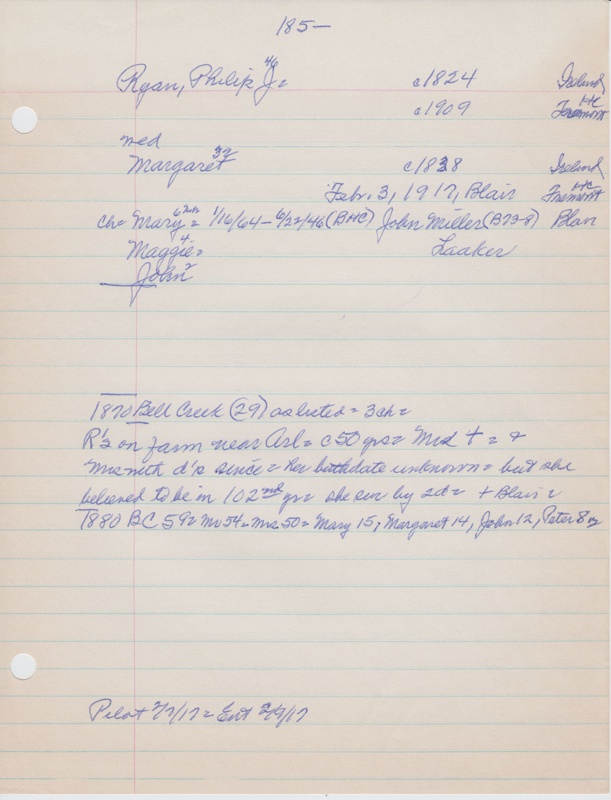 185—
Ryan, Philip J= 46 c1824 Ireland
c1909 HC Fremont
med
Margaret 32 c1838 Ireland
Febr. 3, 1917, Blair HC Fremont
ch= Mary 6 = 1/16/64 – 6/22/46 (BHC) John Miller (B73-8) Blair
Maggie 4 = Laaker
John 2
1870 Bell Creek (29) as listed = 3 ch =
R's on farm near Arl = c50 yrs = Mrd + = &
Mrs with d's since = her birthdate unknown = but she
believed to be in 102nd yr = she sur by 2d = + Blair =
1880 BC 59 = Mr 54 = Mrs 50 = Mary 15, Margaret 14, John 12, Peter 8
Pilot 2/7/17 = Ent 2/9/17